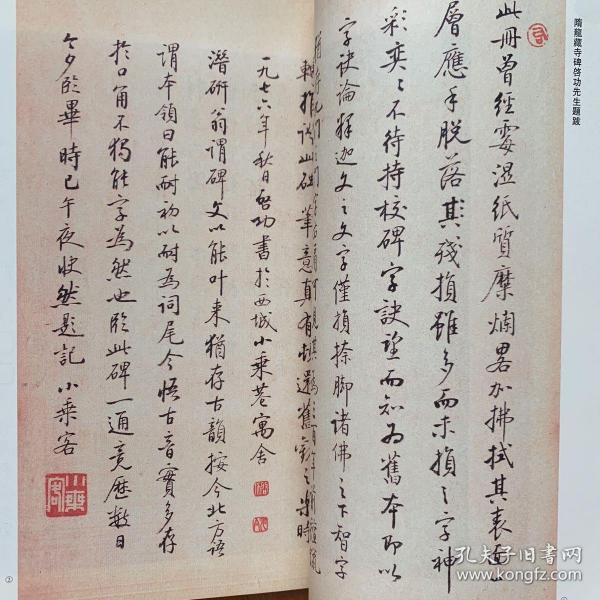 隋龍藏寺碑啓功先生題跋
此冊曾經霉濕紙質糜爛畧加拂拭其表
層應手脫落其殘損雖多而未損之字神
彩奕〻不待持校碑字訣望而知為舊本即以
字訣論釋迦文之文字僅損捺脚諸佛之下智字
轉推論此碑筆意真有
一九七六年秋日啓功書於西城小乘巷寓舍
潛研翁謂碑文以能叶来猶存古韻按今北方語
謂本領曰能耐初以耐為詞尾今悟古音實多存
於口角不獨能字為然也臨此碑一通竟歷數日
今夕臨畢時已午夜快然題記小乘客
小乘客
孔夫子旧书网
www.kongfz.com